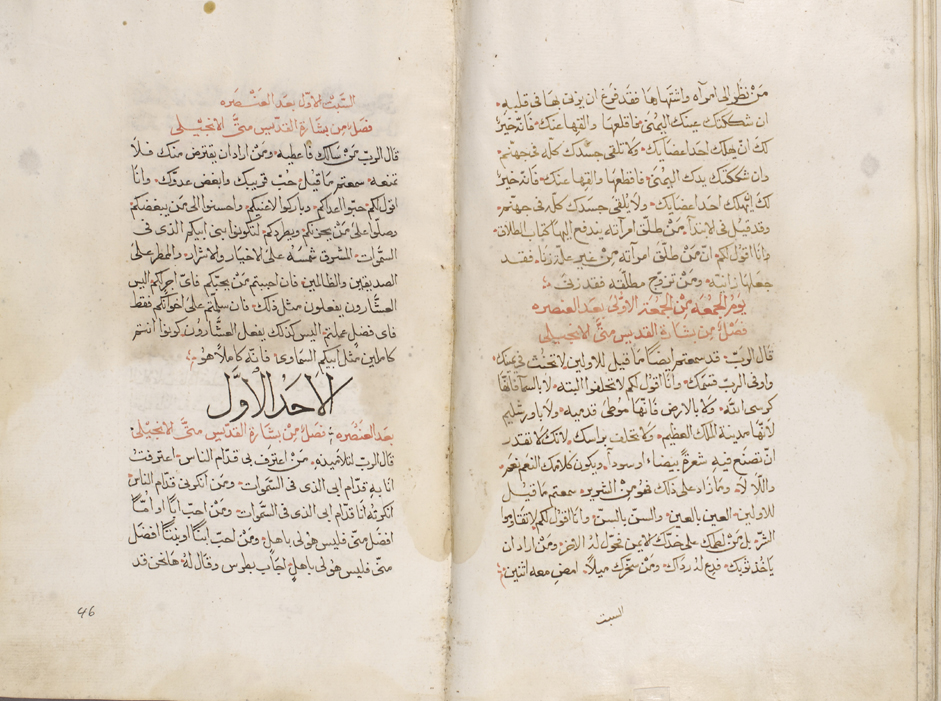 مَنْ نظر الى امرآه واشتهاها فقد فرغ ان يزنى بها فى قلبه
ان شككتك عينك اليمنى فاقلعها والقها عنك فانه خير
لك ان يهلك احد اعضايك ولا تلقى جسدك كله فى جهنم
وان شككتك يدك اليمنى فاقطعها والقها عنك فانه خير
لك ايهلك احد اعضايك ولا يلقى جسدك كله فى جهنم
وقد قيل فى الابتدآ مَنْ طلق امرآته يندفع اليها كتاب الطلاق
وانا اقول لكم ان مَنْ طلق امرآته مِنْ غير علة زنا فقد
جعلها زانيه ومَنْ تزوج مطلقه فقد زنى
يوم الجمعه مِنَ الجمعة الاولى بعد العنصره
فصل من بشارة القديس متى الانجيلى
قال الرب قد سمعتم ايضا ما قيل للاولين لا تحنث فى يمينك
واوفى الرب قسمك وانا اقول لكم لا تحلفوا البته لا بالسما فانها
كرسى الله ولا بالارض فانها موطى قدميه ولا باورشليم
لانها مدينة الملك العظيم ولا تحلف براسك لانك لا تقدر
ان تصنع فيه شعرة بيضاء او سودآ ويكون كلامك النعم نعم
واللا لا وما زاد على ذلك فهو من الشرير سمعتم ما قيل
للاولين العين بالعين والسن بالسن وانا اقول لكم لا تقاوموا
الشر بل مَنْ لطمك على خدك الايمن فحول له الاخر ومَنْ اراد ان
ياخذ ثوبك فدع له ردآك ومَنْ سخرك ميلا امض معه اثنين
السبت
السبت الاول بعد العنصره
فصل من بشارة القديس متى الانجيلى
قال الرب مَنْ سالك فاعطيه ومَنْ اراد ان يقترض منك فلا
تمنعه سمعتم ما قيل حب قريبك وابغض عدوك وانا
اقول لكم حبوا اعداكم وباركوا لاعنيكم واحسنوا الى من يبغضكم
وصلوا على مَنْ يحزنكم ويطردكم لتكونوا بنى ابيكم الذى فى
السموات المشرق شمسه على الاخيار والاشرار والمطر على
الصديقين والظالمين فان احببتم من يحبكم فاى اجر لكم اليس
العشارون يفعلون مثل ذلك فان سلمتم على اخوانكم فقط
فاى فضل عملتم اليس كذلك يفعل العشارون كونوا انتم
كاملين مثل ابيكم السماوى فانه كاملا هو
الاحد الاول
بعد العنصره فصل من بشارة القديس متى الانجيلى
قال الرب لتلاميذه مَنْ اعترف بى قدام الناس اعترفت
انا به قدام ابى الذى فى السموات ومَنْ انكرنى قدام الناس
انكرته انا قدام ابى الذى فى السموات ومَنْ احب ابًا او امًا
افضل منى فليس هو لى باهل ومَنْ احب ابنًا او بنتًا افضل
منى فليس هو لى باهل اجاب بطرس وقال له ها نحن قد
46